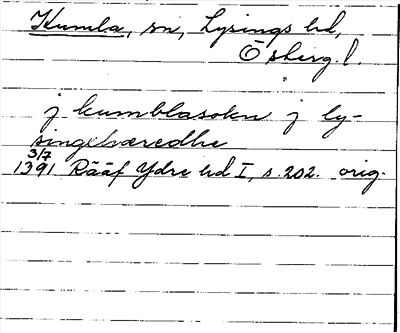 Kumla, sn, Lysings hd,
Österg. l.
j kumblasokn j ly-
singshæredhe
3/7
1391 Rääf Ydre hd I, s. 202. orig.